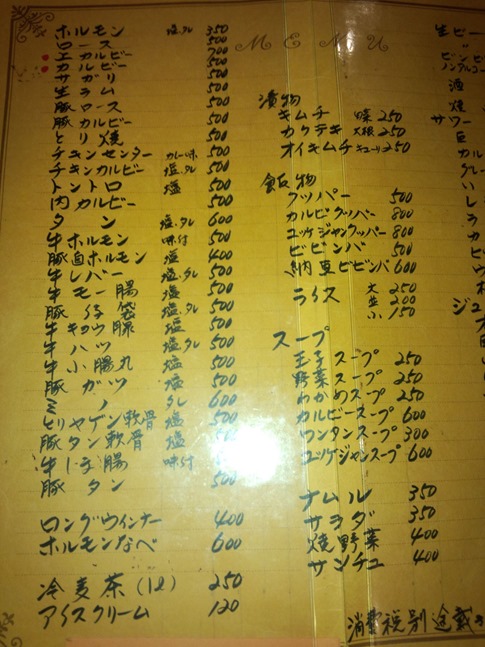 MENU
ホルモン 塩.タレ 350
ロース 500
エカルビー 700
カルビー 500
サガリ 500
生ラム 500
豚ロース 500
豚カルビー 500
とり焼 500
チキンセンター カレー味 500
チキンカルビー 塩.タレ 500
トントロ 塩 500
内カルビー 500
タン 塩.タレ 600
牛ホルモン 味付 500
豚直ホルモン 塩 400
牛レバー 塩.タレ 500
牛モー腸 塩 500
豚子袋 塩.タレ 500
牛キョウ腺 塩 500
牛ハツ 塩.タレ 500
牛小腸丸 塩 500
豚ガツ 塩 500
ミノ タレ 600
とりヤゲン軟骨 塩 500
豚タン軟骨 塩
牛しま腸 味付
豚タン 500
ロングウインナー 400
ホルモンなべ 600
冷麦茶(1ℓ) 250
アイスクリーム 120
漬物
キムチ 白菜 250
カクテキ 大根 250
オイキムチ キューリ 250
飯物
クッパー 500
カルビクッパー 800
ユッケジャンクッパー 800
ビビンバ 500
納豆ビビンバ 600
ライス 大 250
並 200
小 150
スープ
玉子スープ 250
野菜スープ 250
わかめスープ 250
カルビースープ 600
ワンタンスープ 300
ユッケジャンスープ 600
ナムル 350
サラダ 350
焼野菜 400
サンチュ 400
生ビー
〃
ビンビ
ノンアルコー
酒
焼
サワー
巨
カル
グレー
い
レ
ラ
カ
ヒ
ウ
ジュ
消費税別途戴き